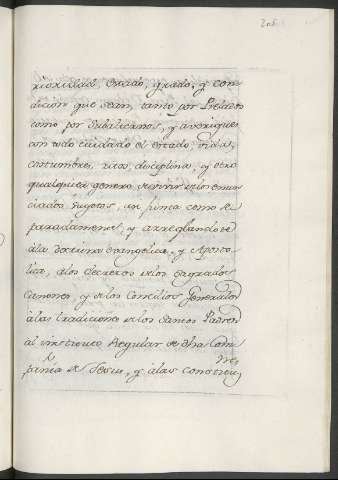 205
rioridad, estado, grado, y con
dicion que sean, tanto por Prelados
como por Subalternos, y averigues
con todo cuidado el estado, vida,
costumbres, ritos, disciplina, y otro
qualquiera genero de vivir de los enun
ciados sugetos, asi juntos como se
paradamente, y arreglandote
a la doctrina Evangelica, y Aposto
lica, a los decretos de los Sagrados
Canones, y de los Concilios Generales
à las tradiciones de los Santos Padres
al instituto Regular de dha Com
pañia de Jesus, y à las constitu